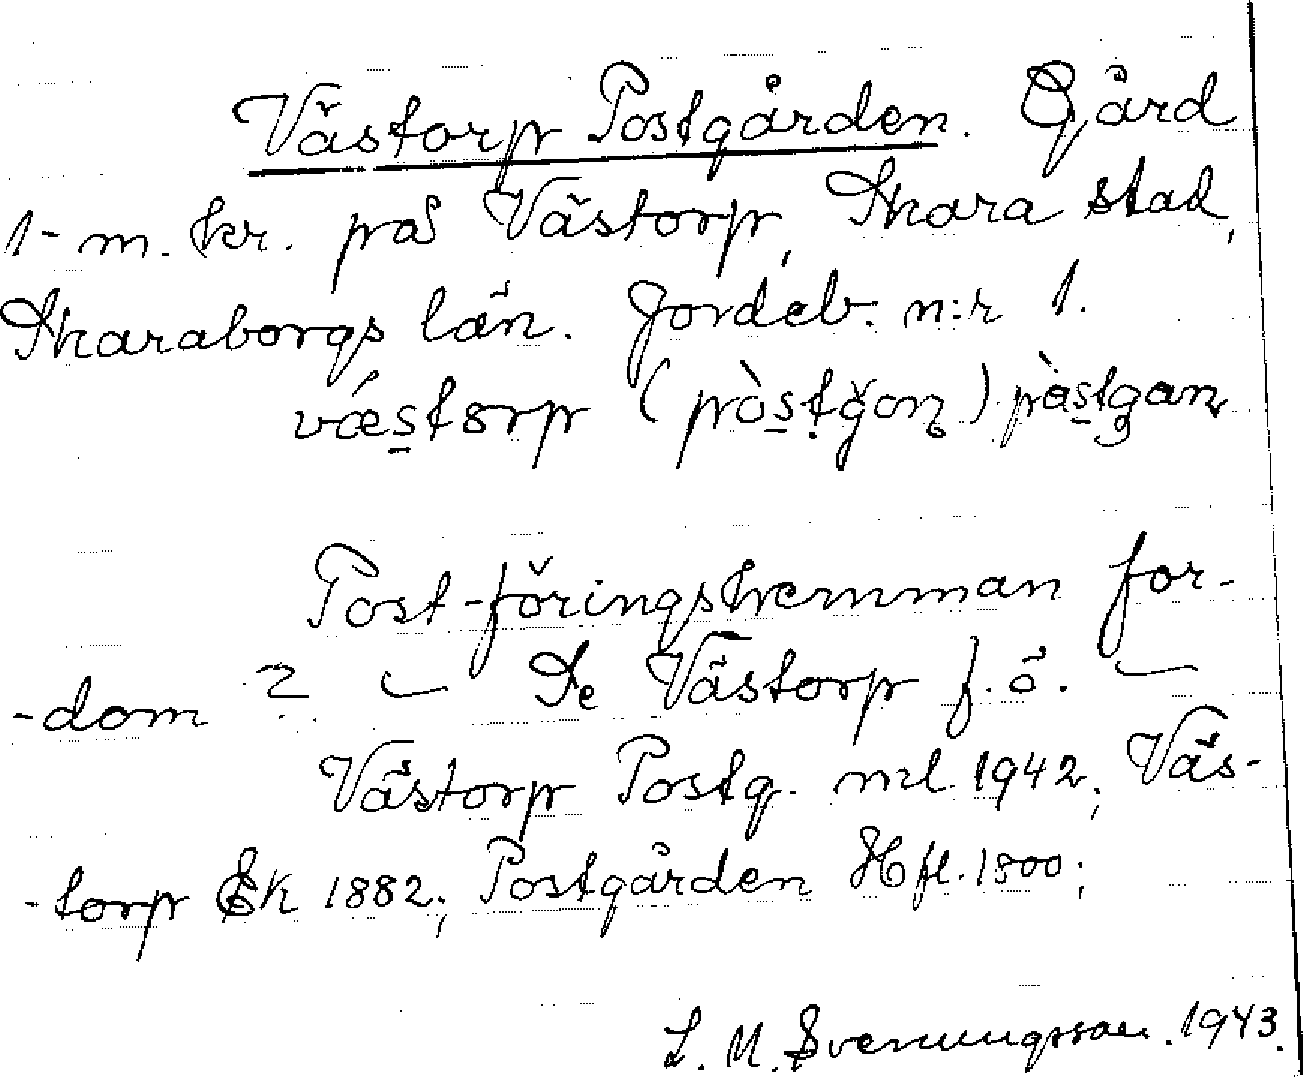 Västorp Postgården. Gård
1 - m. kr. på Västorp, Skara stad,
Skaraborgs län. Jordeb. n:r 1.
vǽstorp (pòstgon) pòstgan
Post-föringshemman for-
-dom ? Se Västorp f. ö.
Västorp Postg. ml 1942; Väs-
-torp Ek 1882; Postgården Hfl. 1800;
L. M. Svenungsson. 1943.